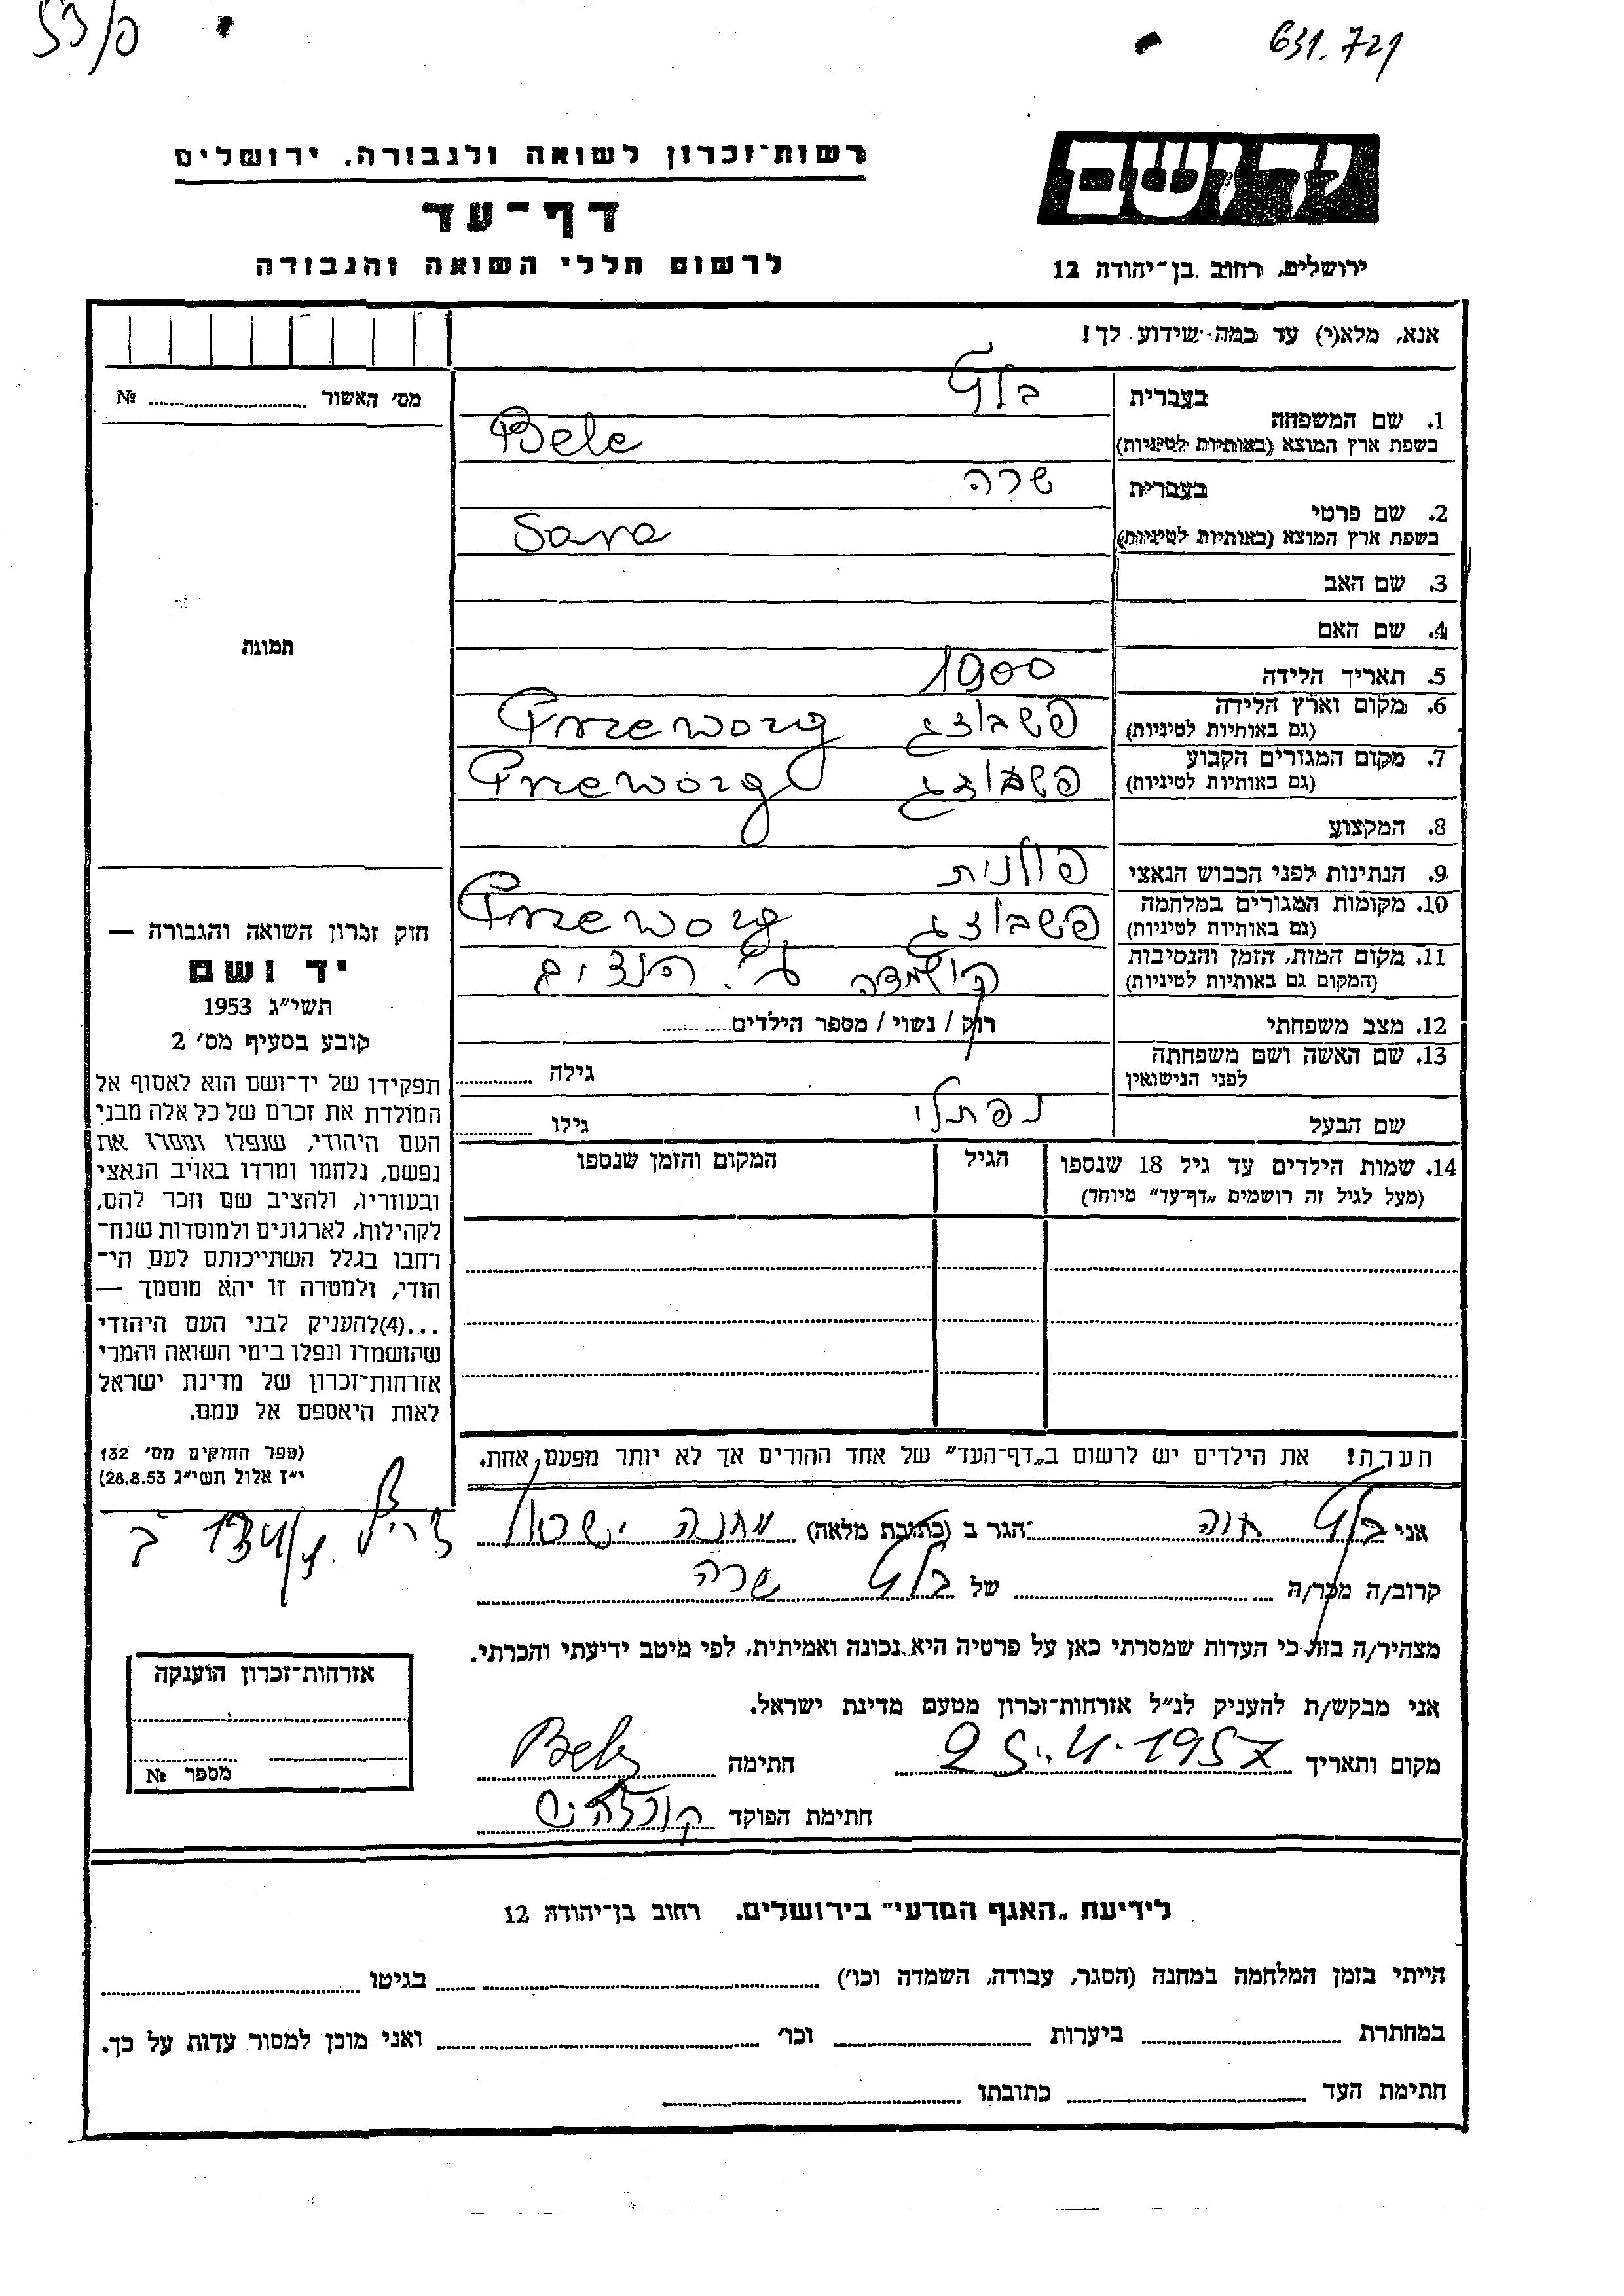 53/ס
631.721
יד ושם
רשות־זכרון לשואה ולגבורה, ירושלים
דף־עד
לרשום חללי השואה והגבורה
ירושלים, רחוב בן־יהודה 12
אנא, מלא(י) עד כמה שידוע לך!
מס' האשור № ........
1. שם המשפחה
בעברית
בלץ
בשפת ארץ המוצא (באותיות לטיניות)
Bele
2. שם פרטי
בעברית
שרה
בשפת ארץ המוצא (באותיות לטיניות)
Sara
3. שם האב
4. שם האם
תמונה
5. תאריך הלידה 1900
6. מקום וארץ הלידה
(גם באותיות לטיניות)
7. מקום המגורים הקבוע
(גם באותיות לטיניות)
8. המקצוע
9. הנתינות לפני הכבוש הנאצי פולנית
10. מקומות המגורים במלחמה
(גם באותיות לטיניות)
11. מקום המות, הזמן והנסיבות
(המקום גם באותיות לטיניות)
הושמדה ע״י הנצים
12. מצב משפחתי רוק / נשוי / מספר הילדים........
13. שם האשה ושם משפחתה
לפני הנישואין
גילה ........
שם הבעל נפתלי גילו ........
14. שמות הילדים עד גיל 18 שנספו הגיל המקום והזמן שנספו
(מעל לגיל זה רושמים „דף־עד" מיוחד)
חוק זכרון השואה והגבורה —
יד ושם
תשי"ג 1953
קובע בסעיף מס' 2
תפקידו של יד־ושם הוא לאסוף אל
המולדת את זכרם של כל אלה מבני
העם היהודי, שנפלו ומסרו את
נפשם, נלחמו ומרדו באויב הנאצי
ובעוזריו, ולהציב שם וזכר להם,
לקהילות, לארגונים ולמוסדות שנח־
רחבו בגלל השתייכותם לעם הי־
הודי, ולמטרה זו יהא מוסמך —
...(4)להעניק לבני העם היהודי
שהושמדו ונפלו בימי השואה והמרי
אזרחות־זכרון של מדינת ישראל
לאות היאספם אל עמם.
(ספר החוקים מס' 132
י"ז אלול תשי"ג 28.8.53)
הערה! את הילדים יש לרשום ב„דף־העד" של אחד ההורים אך לא יותר מפעם אחת.
אני בלץ חוה הגר ב (כתובת מלאה) מחנה ישראל
קרוב/ה מכר/ה ........ של בלץ שרה
מצהיר/ה בזה כי העדות שמסרתי כאן על פרטיה היא נכונה ואמיתית, לפי מיטב ידיעתי והכרתי.
אני מבקש/ת להעניק לנ"ל אזרחות־זכרון מטעם מדינת ישראל.
מקום ותאריך 25.4.1957 חתימה
חתימת הפוקד
אזרחות־זכרון הוענקה
מספר №
לידיעת „האגף המדעי" בירושלים. רחוב בן־יהודה 12
הייתי בזמן המלחמה במחנה (הסגר, עבודה, השמדה וכו') ........ בגיטו ........
במחתרת ........ ביערות ........ וכו' ........ ואני מוכן למסור עדות על כך.
חתימת העד ........ כתובתו ........